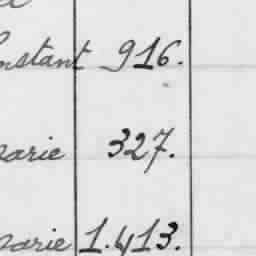 nstant 916.
arie 327.
arie 1.413.